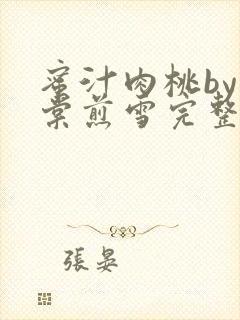 蜜汁肉桃by
棠煎雪完整
張晏